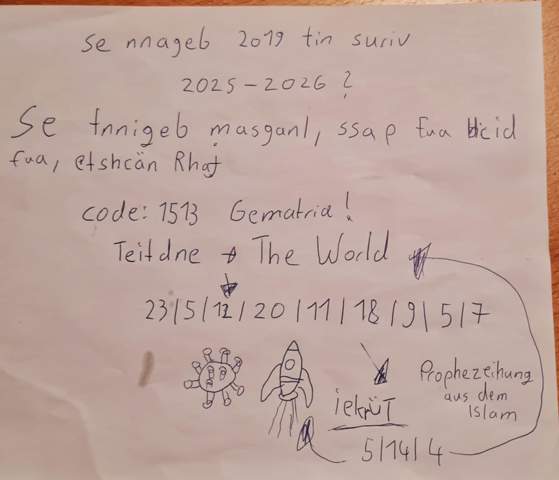 Se nnageb 2019 tin suriv
2025-2026?
Se tnnigeb masganl, ssap fua hcid
fua, etshcän Rhaj
code: 1513 Gematria!
Teitdne → The World
23/5/12/20/11/18/9/5/7
iekrüT
Prophezeihung
aus dem
Islam
5/14/4